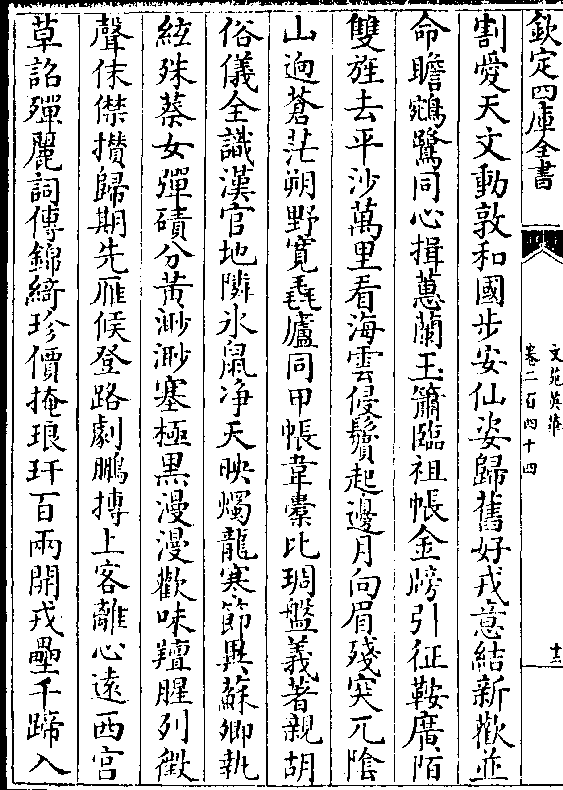 欽定四庫全書
文苑英華
卷二百四十四
十三
割愛天文動敦和國步安仙姿歸舊好戎意結新歡並
命瞻鵷鷺同心揖蕙蘭玉簫臨祖帳金牓引征鞍廣陌
雙旌去平沙萬里看海雲侵鬢起邊月向眉殘突兀陰
山逈蒼茫朔野寛毳廬同甲帳韋橐比琱盤義著親胡
俗儀全識漢官地隣氷鼠净天映燭龍寒節異蘇卿執
絃殊蔡女彈磧分黃渺渺塞極黒漫漫歡味羶腥列徵
聲伕㒧攢歸期先雁候登路劇鵬摶上客離心遠西宮
草詔殫麗詞傳錦綺珍價掩琅玕百兩開戎壘千蹄入